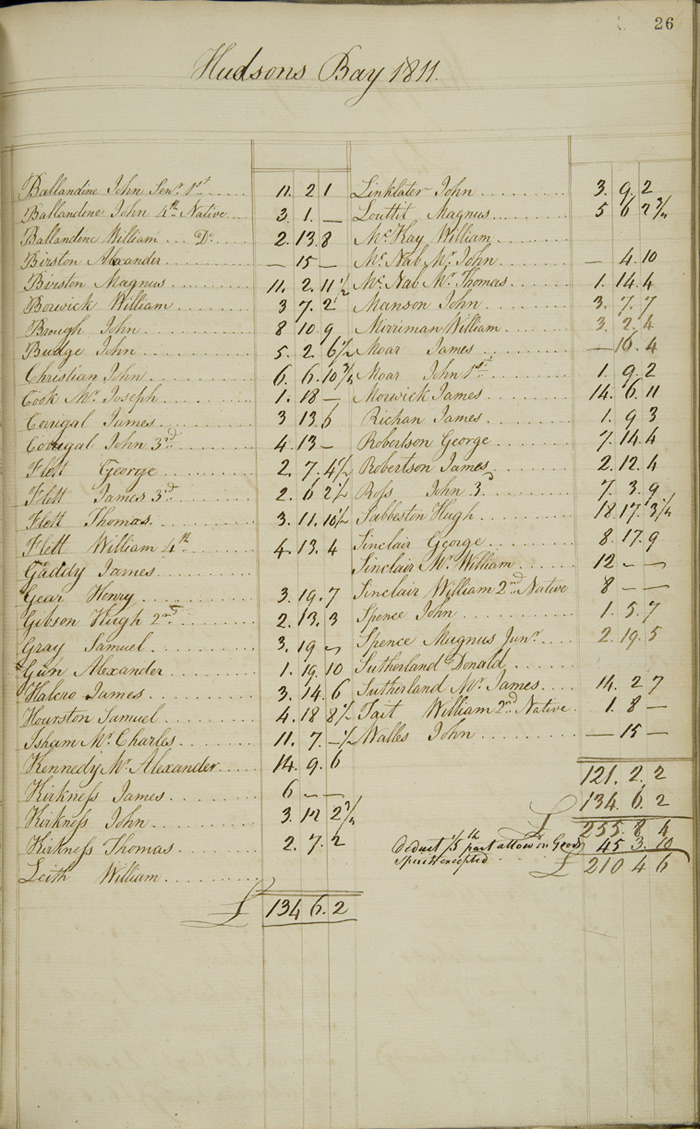 26
Hudsons Bay 1811.
Ballandine John Senr. 1st..... 11. 2 1
Ballandine John 4th. Native... 3. 1. —
Ballandine William ... Do. 2. 13. 8
Birston Alexander........... — 15 —
Birston Magnus......... 11. 2. 11 1/2
Borwick William......... 3 7. 2
Brough John............ 8 10 9
Budge John............ 5. 2 6 1/2
Christian John........... 6. 6. 10 3/4
Cook Mr. Joseph.......... 1. 18 —
Corrigal James........... 3 13 6
Corrigal John 3d......... 4. 13 —
Flett George........... 2. 7. 4 1/2
Flett James 3d......... 2. 6 2 1/2
Flett Thomas........... 3. 11. 10 1/2
Flett William 4th......... 4. 13. 4
Gaddy James............
Gear Henry............ 3. 19. 7
Gibson Hugh 2nd......... 2. 13. 3
Gray Samuel........... 3. 19 —
Gun Alexander.......... 1. 19. 10
Halcro James........... 3. 14. 6
Hourston Samuel......... 4. 18 8 1/2
Isham Mr. Charles......... 11. 7. — 1/2
Kennedy Mr. Alexander..... 14. 9. 6
Kirkness James......... 6 — —
Kirkness John........... 3. 12 2 3/4
Kirkness Thomas......... 2. 7. 2
Leith William...........
£ 134 6. 2
Linklater John........... 3. 9. 2
Louttit Magnus......... 5 6 7 3/4
McKay William...........
McNab Mr. John......... — 4. 10
McNab Mr. Thomas....... 1. 14. 4
Manson John........... 3. 7. 7
Merriman William......... 3. 2. 4
Moar James........... — 16. 4
Moar John 1st......... 1. 9. 2
Morwick James......... 14. 6. 11
Richan James........... 1. 9 3
Robertson George......... 7. 14. 4
Robertson James......... 2. 12. 4
Ross John 3d......... 7. 3. 9
Sabbeston Hugh......... 18. 17. 3 1/4
Sinclair George......... 8. 17. 9
Sinclair Mr. William....... 12 — —
Sinclair William 2nd. Native 8 — —
Spence John........... 1. 5. 7
Spence Magnus Junr....... 2. 19. 5
Sutherland Donald.........
Sutherland Mr. James..... 14. 2 7
Tait William 2nd. Native. 1. 8 —
Walles John........... — 15 —
121. 2. 2
134. 6. 2
£ 255. 8 4
Deduct 1/5th part allow on Goods 45 3. 10
Spirits excepted
£ 210 4 6